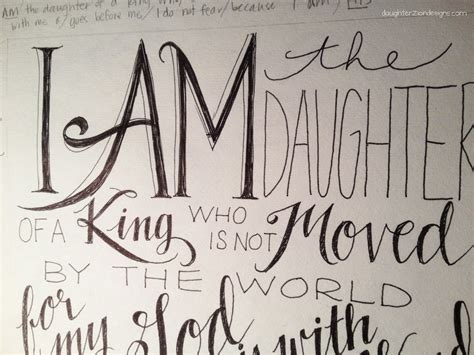 AM the daughter of a king who
daughterziondesigns.com
with me & goes before me/ I do not fear/because I am/
I AM the
DAUGHTER
OF A King WHO IS NOT Moved
BY THE WORLD
for my God is with